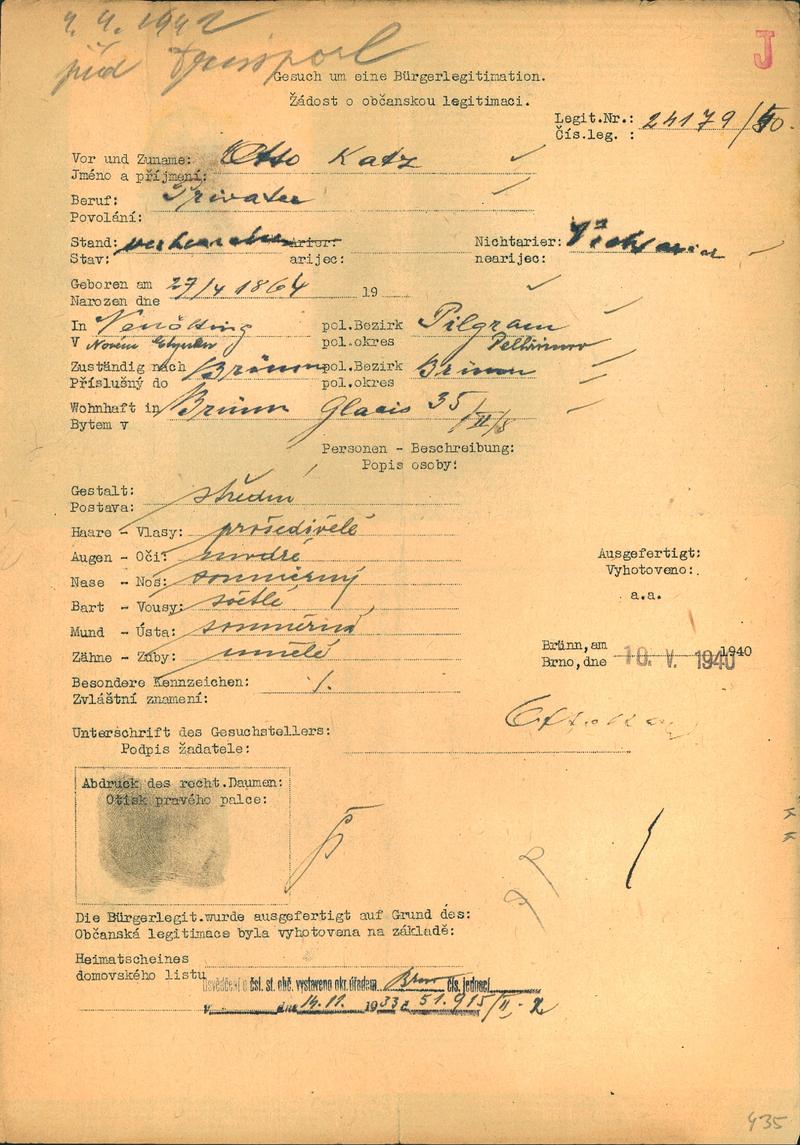 4. 4. 1942
před transport
J
Gesuch um eine Bürgerlegitimation.
Žádost o občanskou legitimaci.
Legit.Nr.: 24179/40.
Čís.leg. :
Vor und Zuname: Otto Katz
Jméno a příjmení:
Beruf: Privater
Povolání:
Stand: verheiratet Arier: Nichtarier: Nichtarier
Stav: arijec: nearijec:
Geboren am 27/4 1864 19
Narozen dne
In pol.Bezirk Pilgram
V Novém pol.okres Pelhřimov
Zuständig nach Brünn pol.Bezirk Brünn
Příslušný do pol.okres
Wohnhaft in Brünn Glacis 35/II/8
Bytem v
Personen - Beschreibung:
Popis osoby:
Gestalt: střední
Postava:
Haare - Vlasy: prošedivělé
Augen - Oči: modré
Nase - Nos: souměrný
Bart - Vousy: světlé
Mund - Ústa: souměrná
Zähne - Zuby: umělé
Besondere Kennzeichen: /.
Zvláštní znamení:
Ausgefertigt:
Vyhotoveno:.
a.a.
Brünn, am 10. V. 1940 1940
Brno, dne
Unterschrift des Gesuchstellers: Otto Katz
Podpis žadatele:
Abdruck des recht.Daumen:
Otisk pravého palce:
Die Bürgerlegit.wurde ausgefertigt auf Grund des:
Občanská legitimace byla vyhotovena na základě:
Heimatscheines
domovského listu
Osvědčení o čsl. st. obč. vystaveno okr. úřadem Brno čís. jednací
v dne 14.11. 1933 č 51.915/II-
435